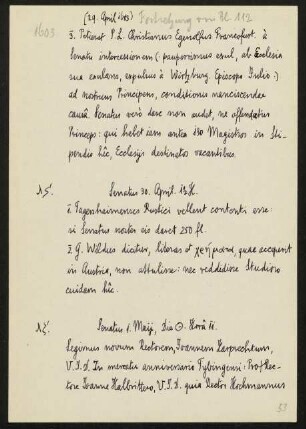 (29. April 1603) Fortsetzung von Bl 112
1603
3. Petierat P. L. Christianus Egenolphus Francofurt. à
Senatu intercessionem (: pauperrimus exul, ab Ecclesia
sua exulans, expulsus à Wirtzburg. Episcopo Iulio :)
ad nostrum Principem, conditionis nanciscendae
causâ. Senatus verò hoc non audet, ne offendatur
Princeps: qui habet iam antea 130 Magistros in Sti-
pendio hîc, Ecclesijs destinatos vacantibus.
Senatus 30. April. 12 H.
1. Tagersheimenses Rustici vellent contenti esse:
si Senatus noster eis daret 250 fl.
2. G. Wildius dicitur, literas et χρήματα, quae accepit
in Austria, non attulisse: nec reddidisse Studioso
cuidam hîc.
Senatus 1. Maij, die ☉. Horâ 11.
Legimus novum Rectorem, Ioannem Harprechtum,
V. I. D. In mercatu anniversario Tybingensi: Pro Rec-
tore Ioanne Halbrittero, V. I. D. quia Rector Hochmannus